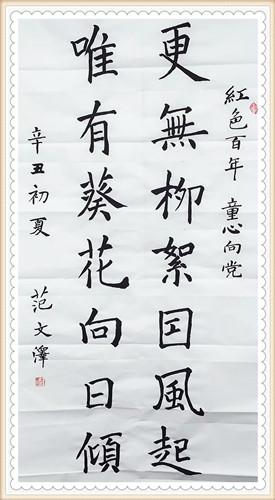 紅色百年 童心向党
更無柳絮因風起
唯有葵花向日傾
辛丑初夏 范文澤